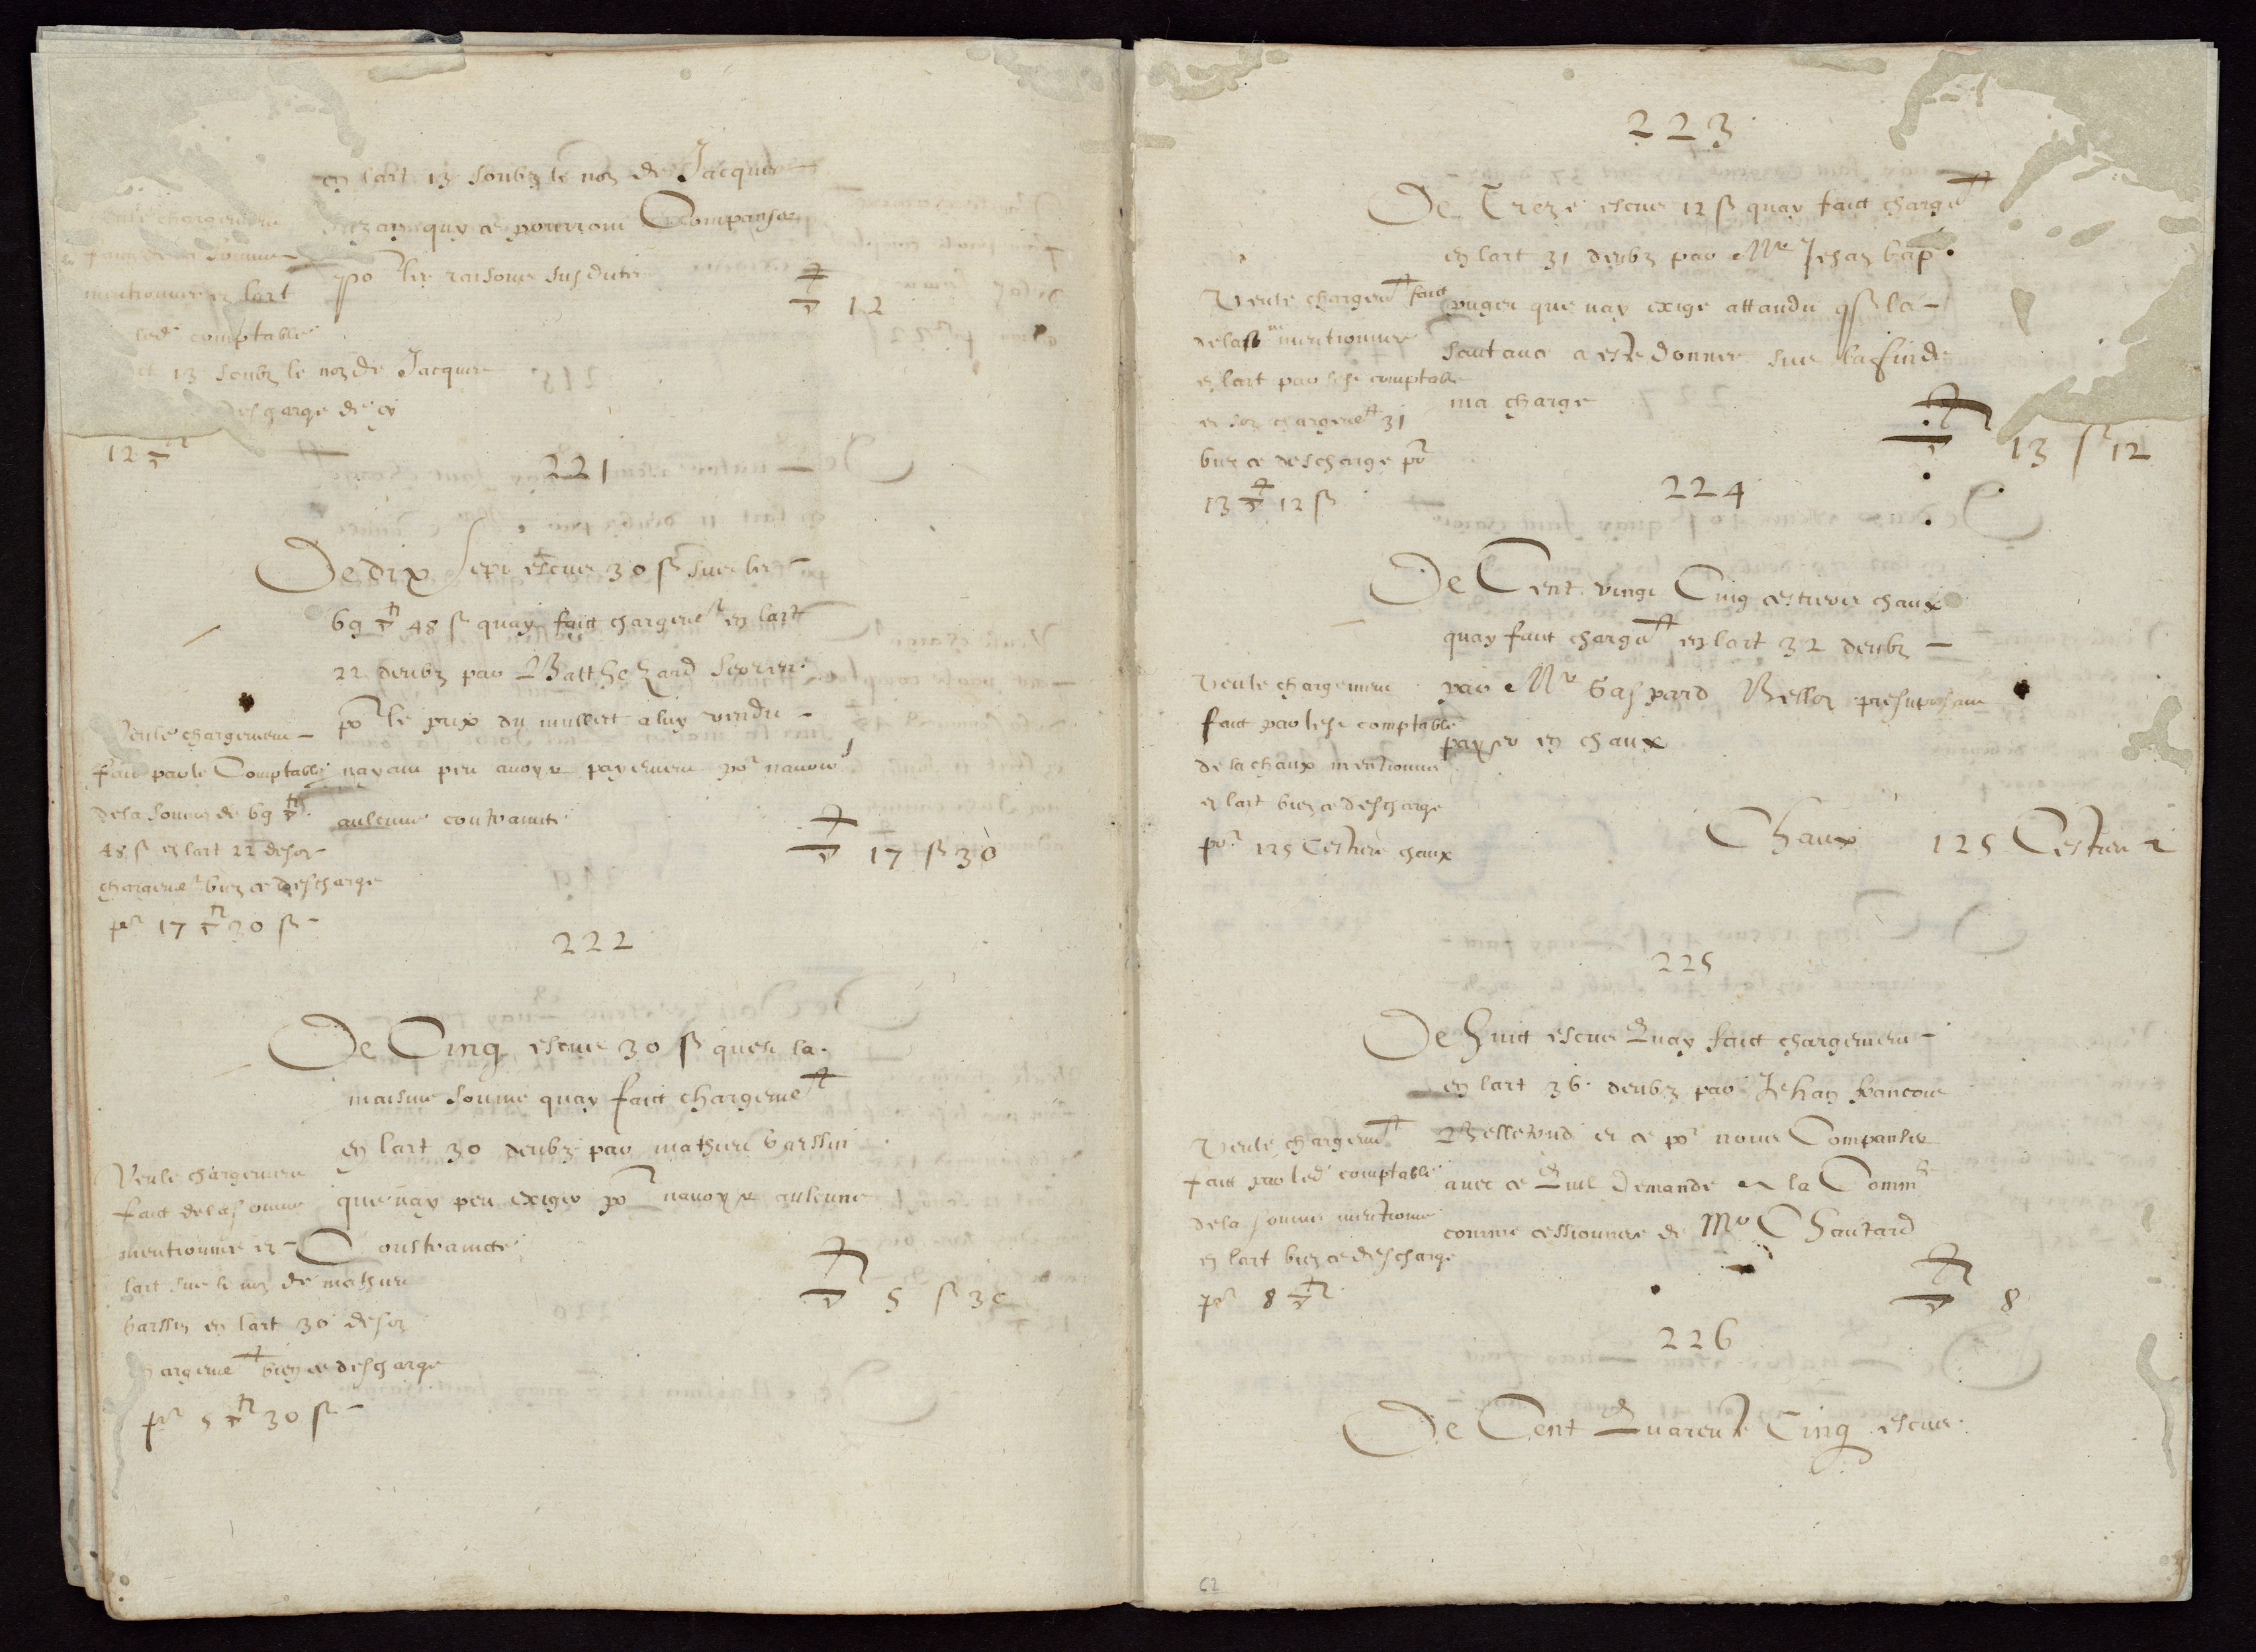 en lart 13 soubz le nom de Jacques
quy ce pourront Companser
po.r les raisons susdites
▽ 12
chargement
somme
mentionnee en lart
led comptable
13 soubz le nom de Jacques
descharge de cy
12 ▽
221
De dix sept escus 30 s sur les
69 ▽ 48 s quay faict chargemt en lart
22 deubz par Balthezard
po.r le prix du mullect a luy vendu
nayant peu avoyr payement po.r navoir
aulcune contrainte
▽ 17 s 30
Veu le chargement
faict par le Comptable
de la somme de 69 ▽
48 s en lart 22 de son
chargemt bien ce descharge
po.r 17 ▽ 30 s
222
De Cinq escus 30 s quest la
maisme somme quay faict chargemt
en lart 30 deubz par mathieu Garssin
que nay peu exiger po.r navoyr aulcune
Constrainte
▽ 5 s 30
Veu le chargement
faict de la somme
mentionnee en
lart sur le nom de mathieu
Garssin en lart 30 de son
chargemt bien ce descharge
po.r 5 ▽ 30 s
223
De Treze escus 12 s quay faict chargemt
en lart 31 deubz par Mr Jehan bap.
puget que nay exigé attandu q sa la
santance a esté donnee sur la fin de
ma charge
▽ 13 s 12
Veu le chargemt faict
de la so mentionnee
en lart par lesd comptable
en son chargemt 31
bien ce descharge po.r
13 ▽ 12 s
224
De Cent vingt Cinq cestiers chaux
quay faict chargemt en lart 32 deubz
par Mr Gaspard Bellon
payer en chaux
Chaux 125 Cestiers
Veu le chargement
faict par lesd comptable
de la chaux mentionnee
en lart bien ce descharge
po.r 125 Cestiers chaux
225
De huict escus Quay faict chargement
en lart 36 deubz par Jehan francois
Bellerond et ce po.r nous Compenser
avec ce Quil Demande a la Commte
comme cessionnere de Mr Chautard
▽ 8
Veu le chargemt
faict par led comptable
de la somme mentionee
en lart bien ce descharge
po.r 8 ▽
226
De Cent Quarente Cinq escus
62